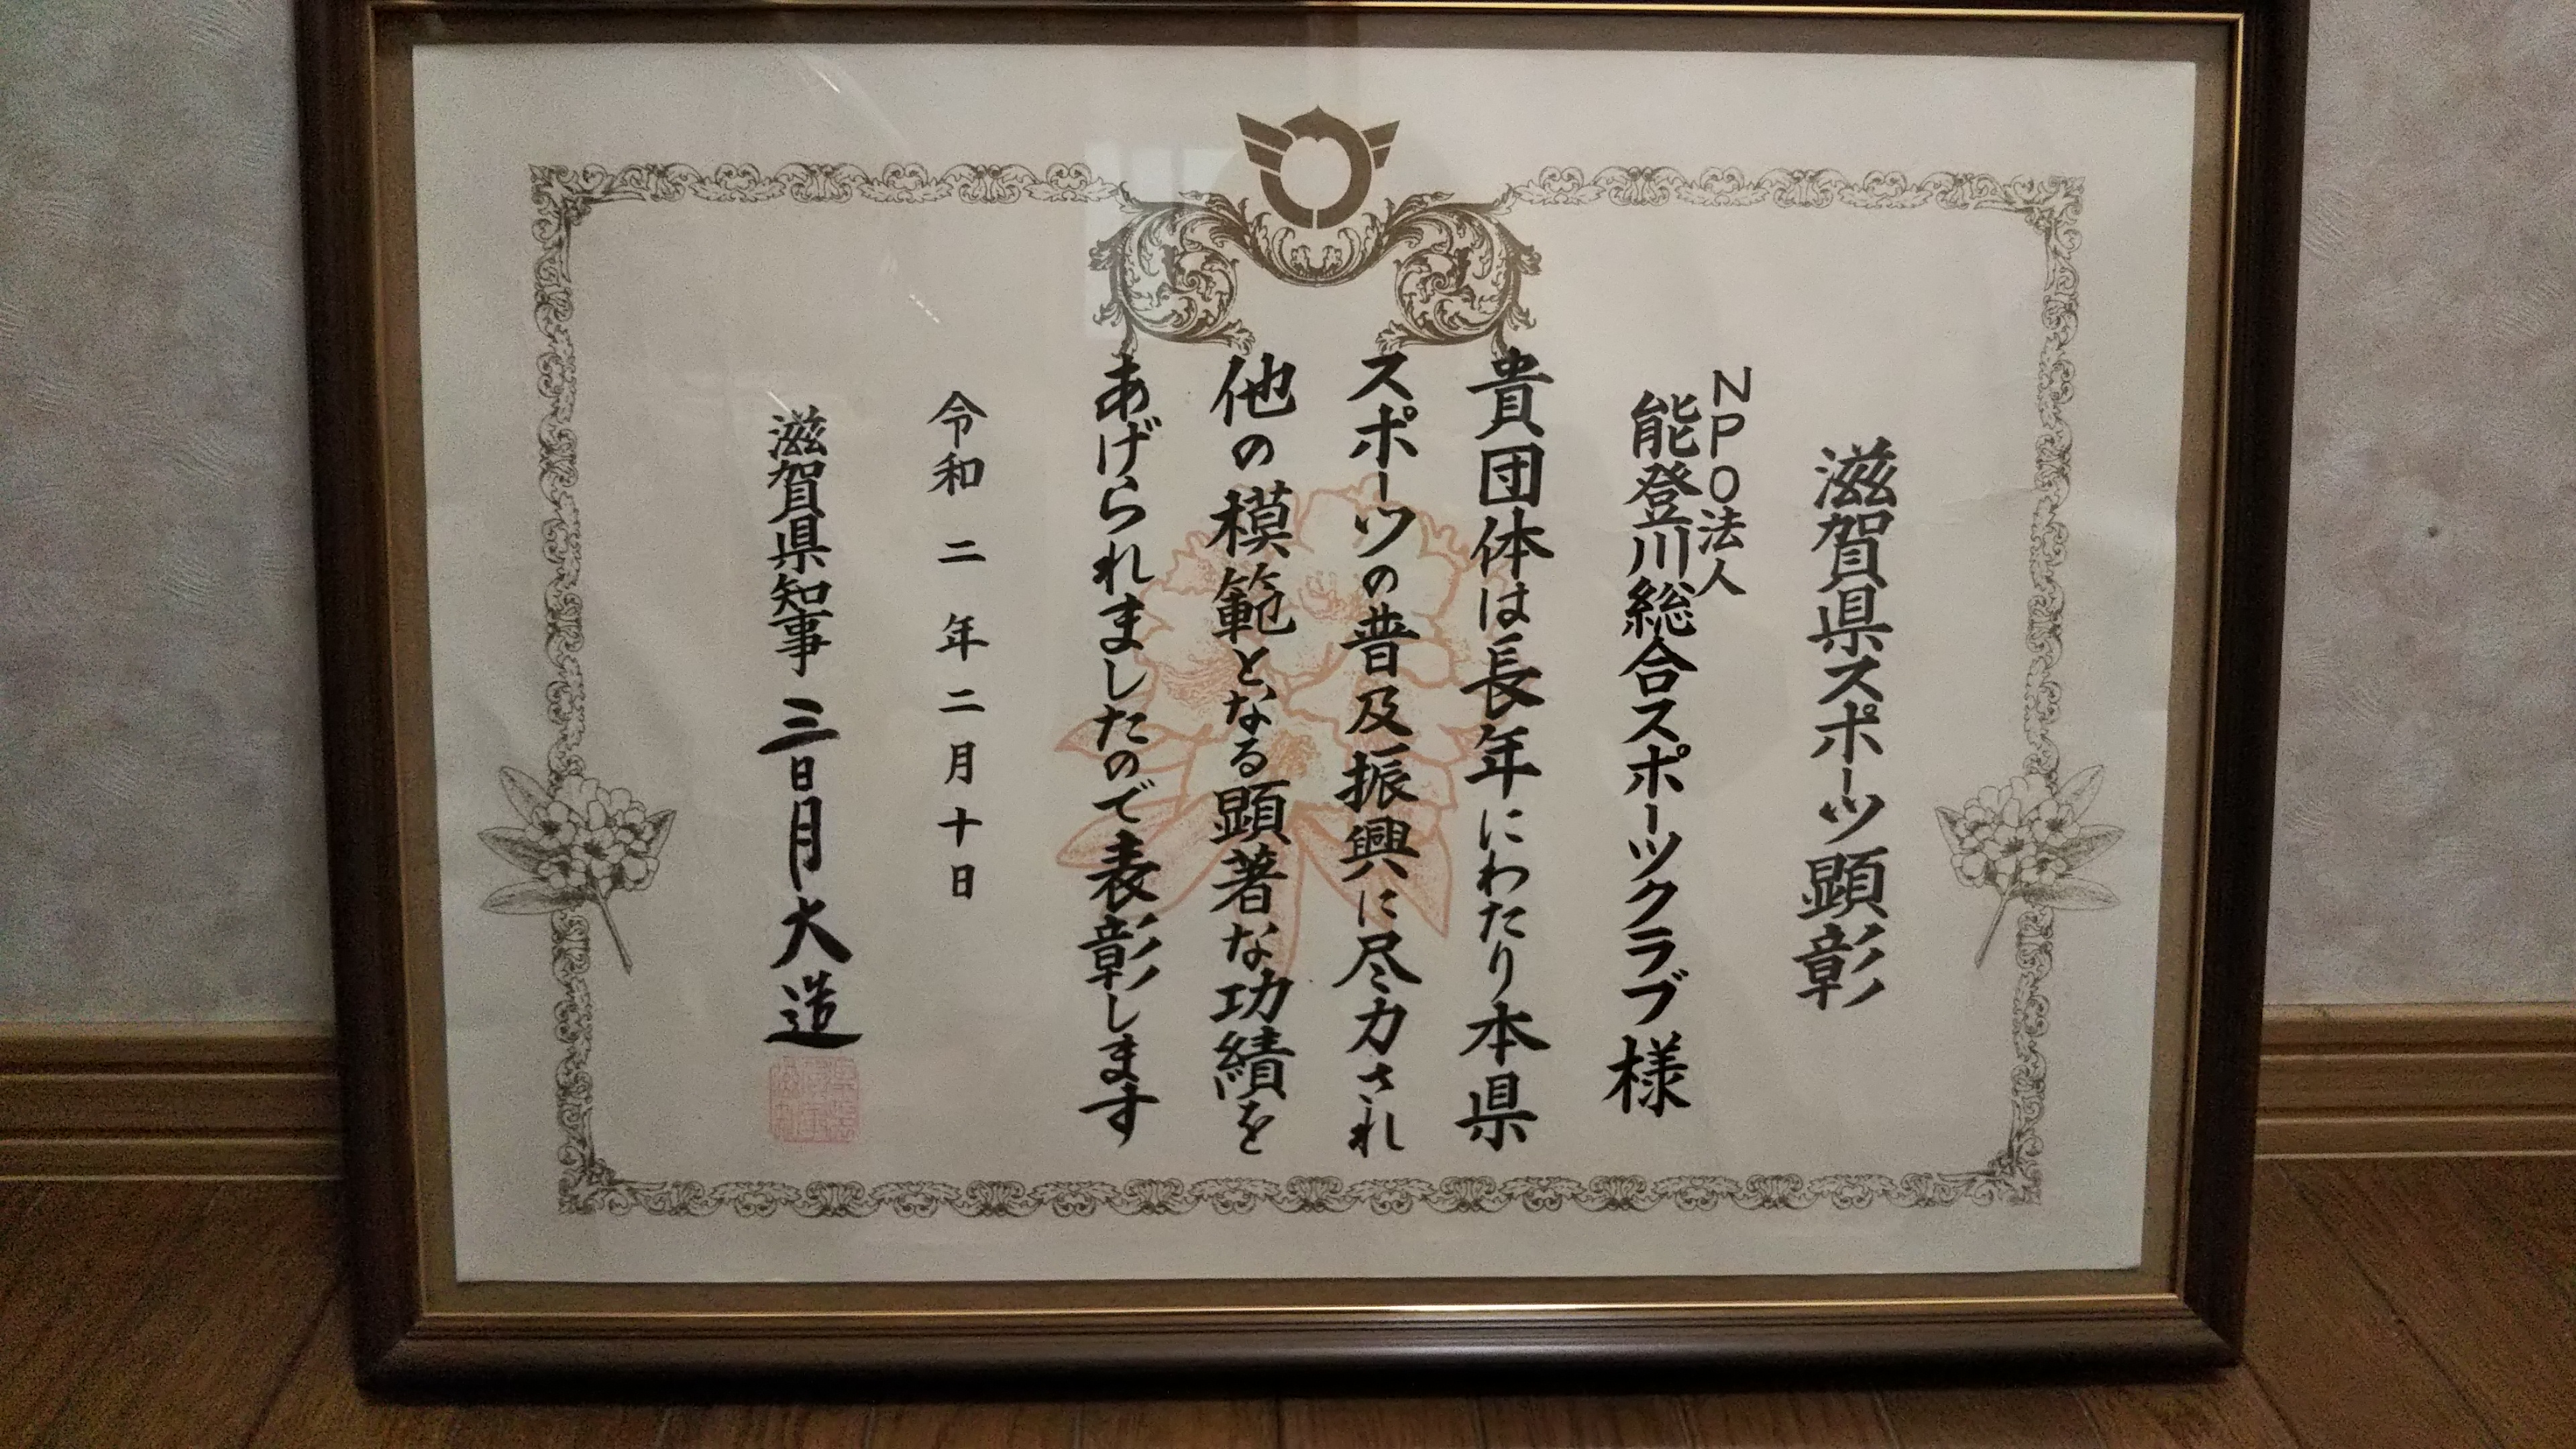 滋賀県スポーツ顕彰
NPO法人
能登川総合スポーツクラブ様
貴団体は長年にわたり本県
スポーツの普及振興に尽力され
他の模範となる顕著な功績を
あげられましたので表彰します
令和二年二月十日
滋賀県知事 三日月大造